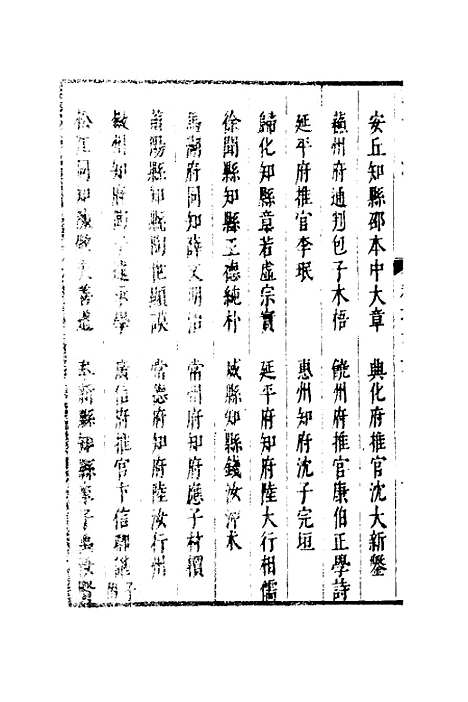 安丘知縣邵本中大章　典化府推官沈大新鑾
蘓州府通判包子木梧　饒州府推官康伯正學詩
延平府推官李珉　惠州知府沈子完垣
歸化知縣章若虛宗實　延平府知府陸大行相儒
徐聞縣知縣王德純朴　城縣知縣錢汝冲木
馬湖府同知薛文明治　常州府知府應子材檟
陽縣知縣　常德府知府陸汝行州
徽州知府　遠承學　廣信府推官卞信
松江同知　奉新縣知縣